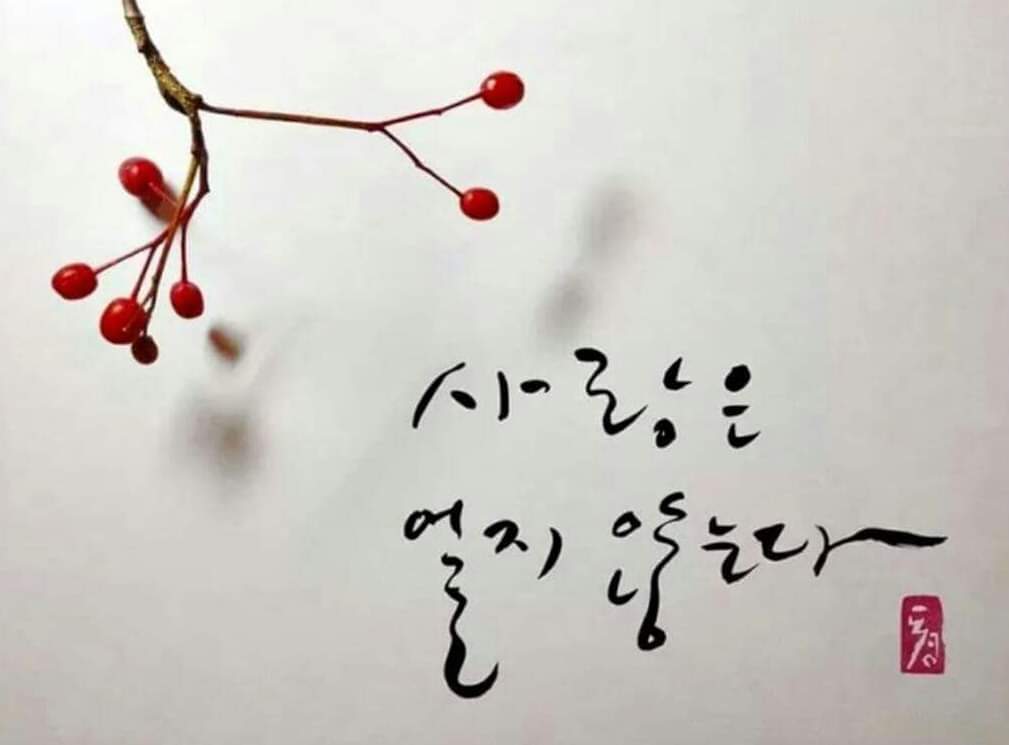 사랑은
얼지 않는다